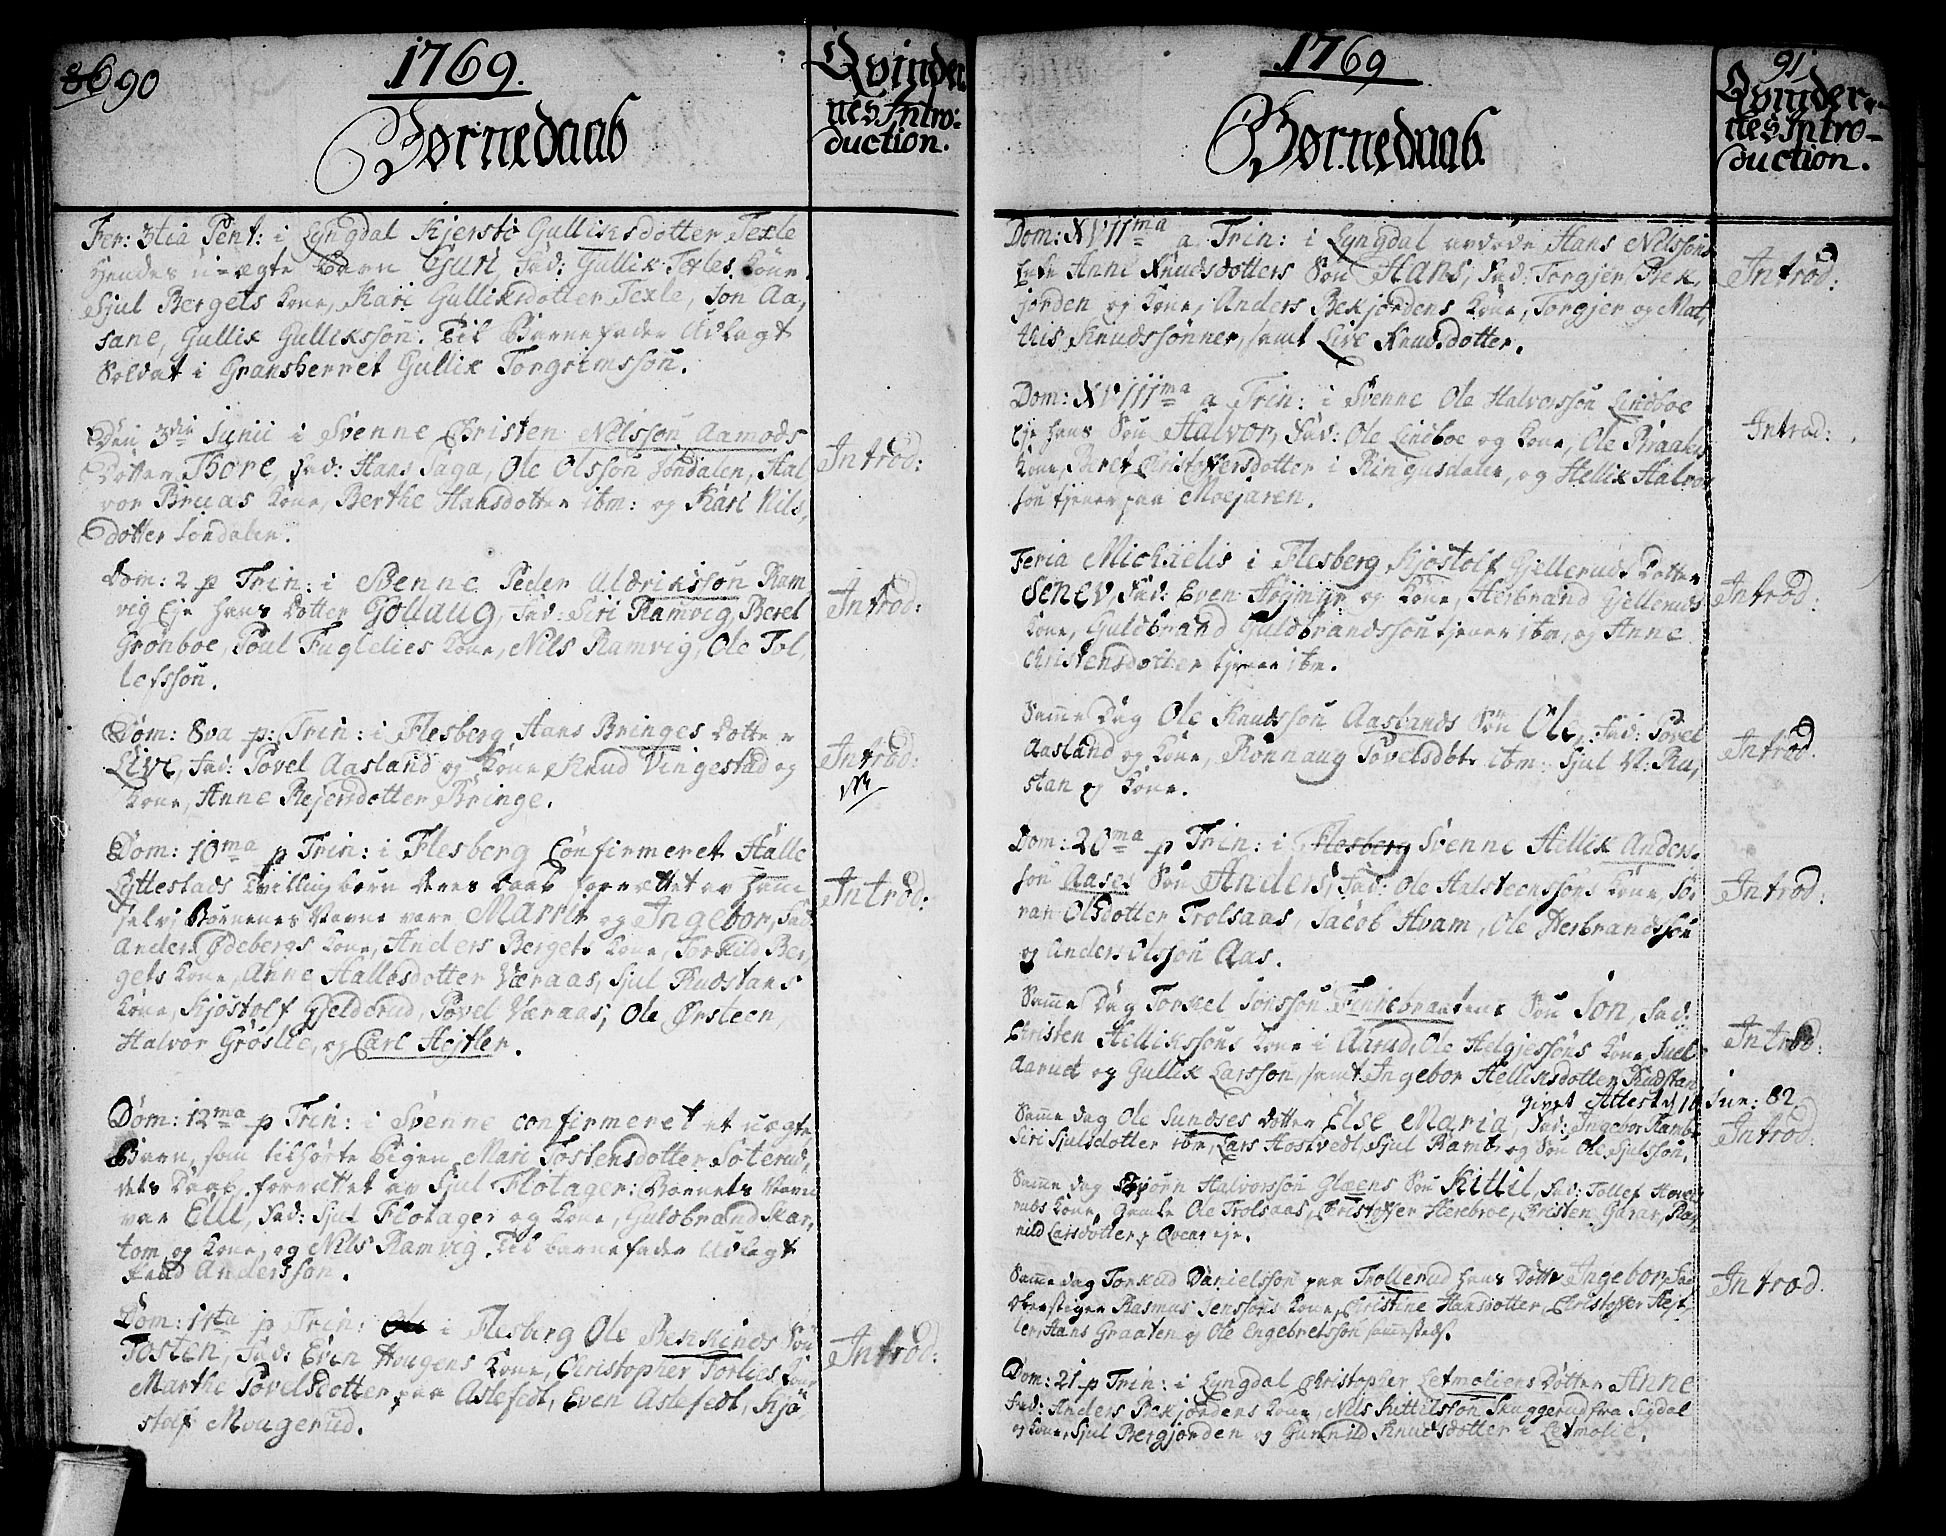 90
1769.
Børnedaab
Qvinder
nes Intro:
duction.
Fer: 3tia Pent: i Lyngdal Kjersti Gulliksdotter Texle
hendes u-ægte Barn Guri, Fad: Gullik Texles Kone
Sjul Bergets Kone, Kari Gulliksdotter Texle, Jon Aa,
sane, Gullik Gulliksson. Til Barnefader Udlagt
Soldat i Gransherret Gullik Torgrimsson.
Den 3die Junii i Svenne Christen Nilsson Aamods
Dotter Thore, Fad: Hans Saga, Ole Olsson Jondalen, Hal
vor Bruas Kone, Berthe Hansdotter ibm: og Kari Nils,
dotter Jondalen.
Introd:
Dom: 2 p Trin: i Svenne Peder Aldriksson Ram
vig Eje hans Dotter Gollaug, Fad: Siri Ramvig, Berel
Grønboe, Poul Fuglelies Kone, Nils Ramvig, Ole Tol,
lefsson.
Introd:
Dom: 8va p: Trin: i Flesberg Hans Bringes Dotter
Live, Fad: Povel Aasland og Kone, Knud Vingestad og
Kone, Anne Rejersdotter Bringe.
Introd:
Dom: 10ma p Trin: i Flesberg Confirmeret Halle
Lyttestads Tvilling børn deres Daab forrettet af ham
selv, Børnenes Navne vare Marrit og Ingebor, Fad
Anders Ødebergs Kone, Anders Bergets Kone, Torkild Ber,
gets Kone, Anne Hallesdotter Væraas, Sjul Rudstans
Kone, Kjøstolf Gjelderud, Povel Væraas, Ole Ørsteen,
Halvor Grøslie, og Carl Hejtler.
Introd:
Dom: 12ma p Trin: i Svenne confirmeret et uægte
Barn, som tilhørte Pigen Mari Tostensdotter Soterud,
dets Daab forrettet af Sjul Flotager: Barnets Navn
var Elli, Fad: Sjul Flotager og Kone, Guldbrand Skar,
tom og Kone, og Nils Ramvig. Til barnefader Udlagt
Knud Andersson.
Dom: 11ta p Trin: i Flesberg Ole Bekkinds Søn
Tosten, Fad: Even Hougens Kone, Christopher Torlies Kone
Marthe Povelsdotter paa Aslefedt, Even Aslefedt, Kjø,
stolf Mougerud.
Introd:
1769
Børnedaab.
91
Qvinder-
nes Intro-
duction.
Dom: XVIIma a Trin: i Lyngdal afdøde Hans Nilssøns
Anne Knudsdotters Søn Hans, Fad: Torgjer Bek,
jorden og Kone, Anders Bekjordens Kone, Torgjer og Mat,
this Knudssønner, samt Live Knudsdotter.
Introd:
Dom: XVIIIma a Trin: i Svenne Ole Halvorsson Lindboe
Eje hans Søn Halvor, Fad: Ole Lindboe og Kone, Ole Braakes
Kone, Beret Christoffersdotter i Ringnsdalen, og Hellik Halvor
son tjener paa Moejaren.
Introd:
Feria Michaelis i Flesberg Kjøstolf Gjelleruds Dotter
Senev, Fad: Even Højmyr og Kone, Herbrand Gjelleruds
Kone, Guldbrand Guldbrandsson tjener ibm, og Anne
Christensdotter tjener ibm.
Introd:
Samme Dag Ole Knudsson Aaslands Søn Ole, Fad: Povel
Aasland og Kone, Ronnaug Povelsdotr ibm: Sjul N: Ru,
stan og Kone.
Introd.
Dom: 20ma p Trin: i Flesberg Svenne Hellik Anders-
son Aases Søn Anders, Fad: Ole Halsteenssøns Kone, Jø
ran Olsdotter Trolsaas, Jacob Hvam, Ole Herbrandsson
og Anders Olsson Aas.
Introd:
Samme Dag Torkel Jonsson Finnebraatens Søn Jon, Fad:
Christen Hellikssøns Kone i Aarud, Ole Helgjessøns Kone, Juel
Aarud og Gullik Larsson, samt Ingebor Helliksdotter Rudstan
Introd:
givet Attest d 10 Jun: 82
Samme dag Ole Sundses dotter Else Maria, Fad: Ingebor Ramb
Siri Sjulsdotter ibm, Lars Hostvedt, Sjul Ramb, og Søn Ole Sjulsson.
Introd.
Samme dag Halvorsson Glæens Søn Kittil, Fad: Tollef
ruds Kone, Gamle Ole Trolsaas, Christoffer Herebroe, Christen Garar, Rag
nild Larsdotter
Samme dag Torkild Danielsson paa Trollerud hans Dotter Ingebor Fad
Oberstiger Rasmus Jenssøns Kone, Christine Hansdotter, Christoffer Hejt
ler, Hans Graaten og Ole Engebretsson sammesteds.
Introd.
Dom: 21 p Trin: i Lyngdal Christopher Letmoliens Dotter Anne
Fad: Anders Bekjordens Kone, Nils Kittilsson Skuggerud fra Sigdal
og Kone, Sjul Bergjorden og Gunnild Knudsdotter i Letmolie.